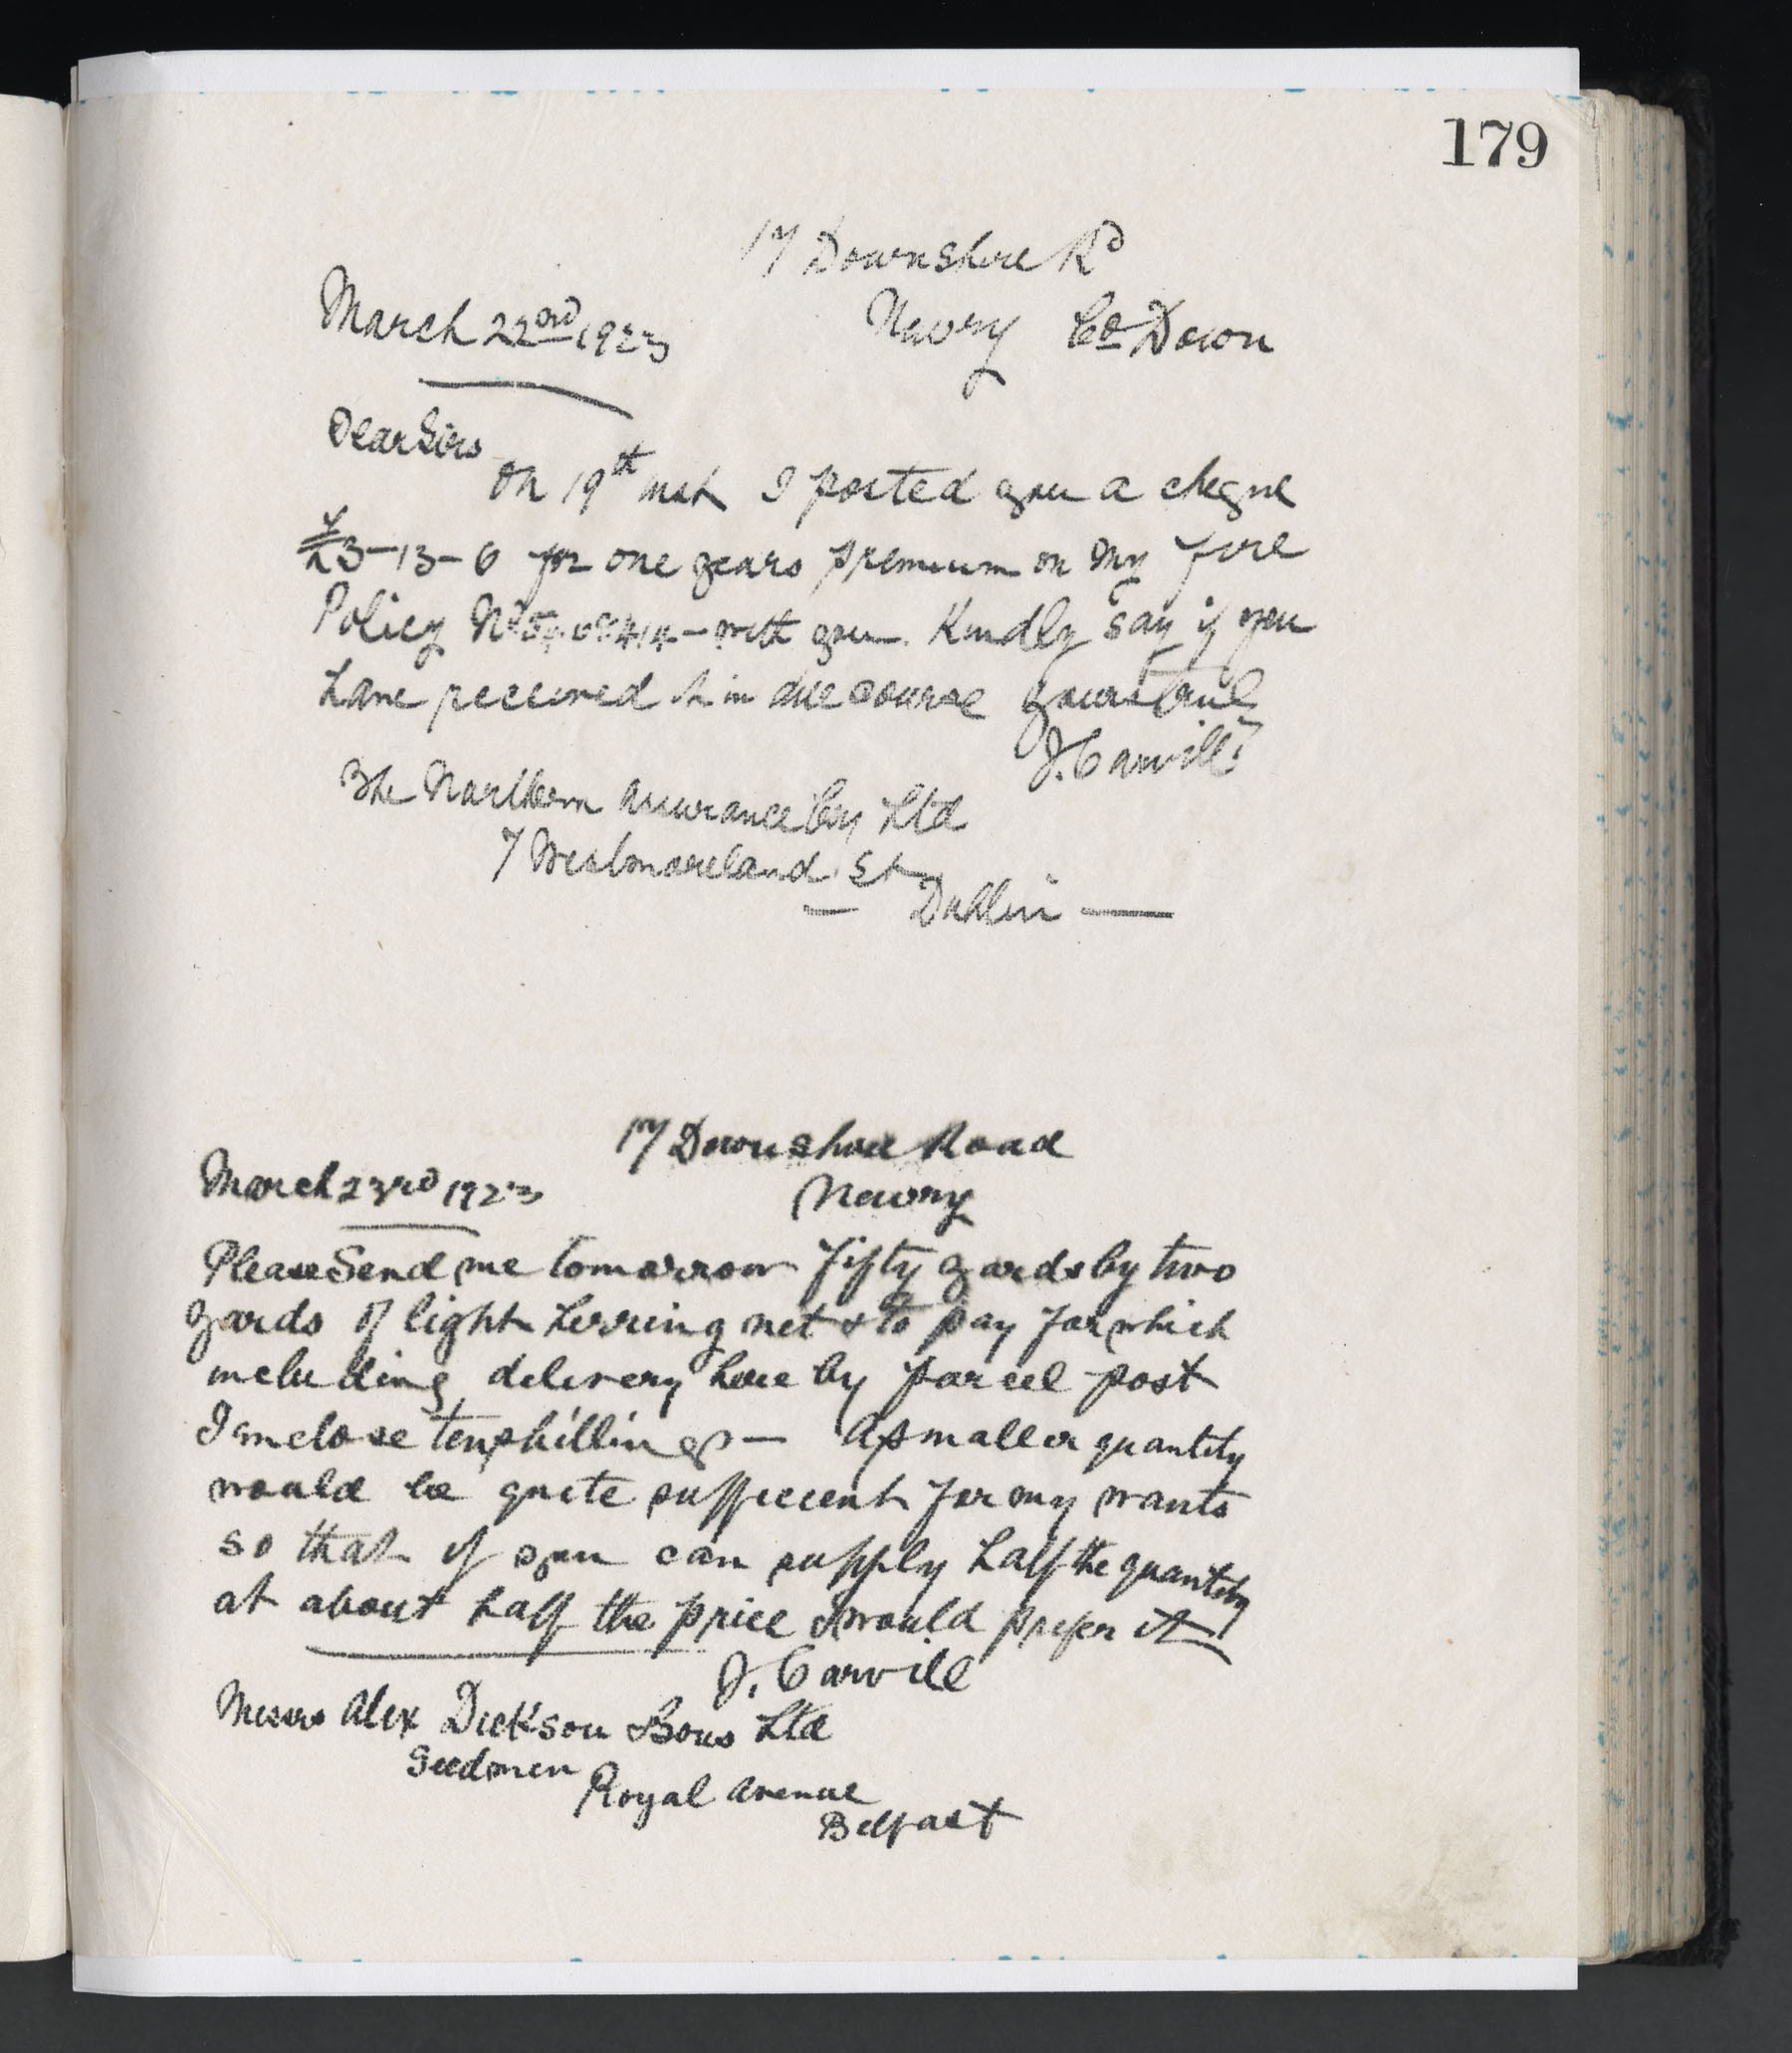 179
17 Downshire Rd
March 22nd 1923
Newry Co Down
Dear Sirs
On 19th inst I posted you a cheque
£3-13-6 for one years premium on my fire
Policy No - with you. Kindly say if you
have received it in due course yours truly
J. Carvill
The Northern Assurance Coy Ltd
7 Westmoreland St
Dublin —
17 Downshire Road
March 23rd 1923
Newry
Please Send me tomorrow fifty yards by two
yards of light herring net & to pay for which
including delivery here by parcel post
I enclose ten shillings — A smaller quantity
would be quite sufficient for my wants
so that if you can supply half the quantity
at about half the price I would prefer it
J. Carvill
Messrs Alex Dickson & Sons Ltd
Seedmen
Royal Avenue
Belfast